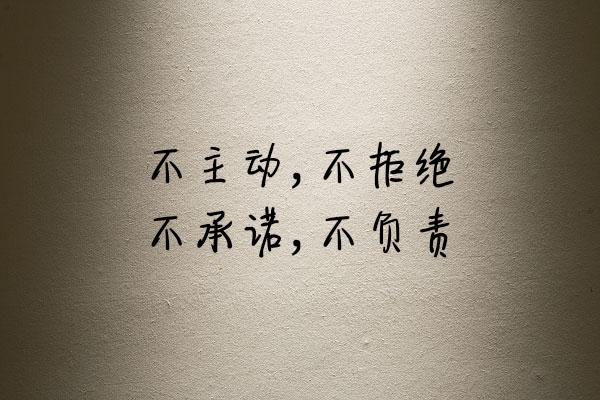 不主动,不拒绝
不承诺,不负责